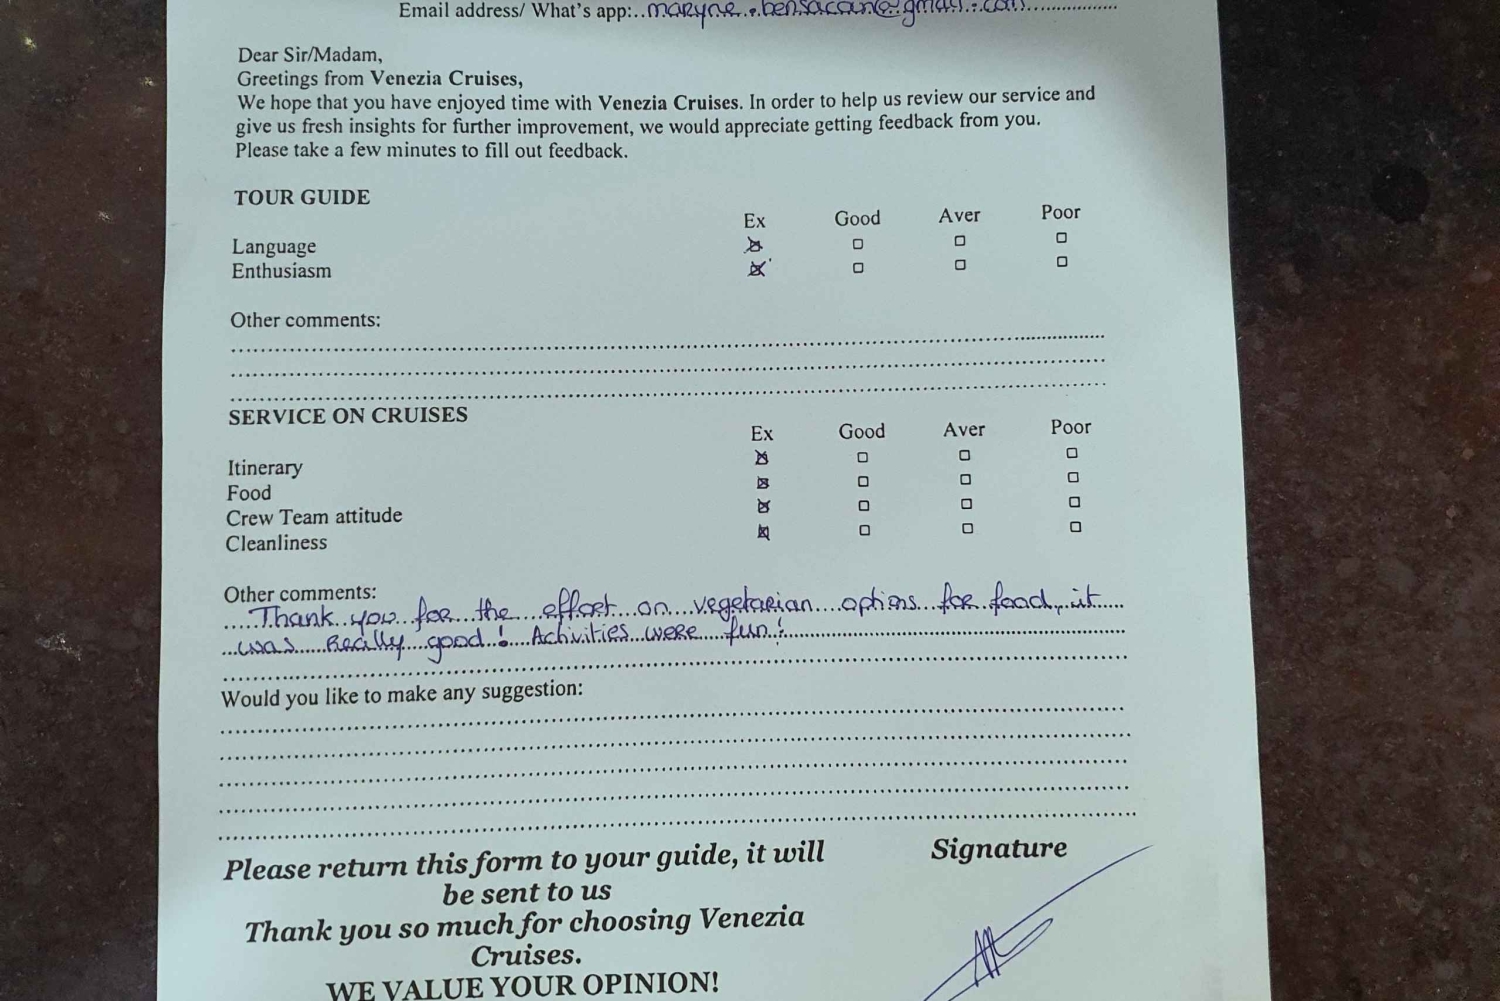 Email address/ What's app:
Dear Sir/Madam,
Greetings from Venezia Cruises,
We hope that you have enjoyed time with Venezia Cruises. In order to help us review our service and
give us fresh insights for further improvement, we would appreciate getting feedback from you.
Please take a few minutes to fill out feedback.
TOUR GUIDE
Ex Good Aver Poor
Language
Enthusiasm
Other comments:
SERVICE ON CRUISES
Ex Good Aver Poor
Itinerary
Food
Crew Team attitude
Cleanliness
Other comments:
Thank you for the effort on vegetarian options for food, it
was really good! Activities were fun!
Would you like to make any suggestion:
Please return this form to your guide, it will
be sent to us
Signature
Thank you so much for choosing Venezia
Cruises.
WE VALUE YOUR OPINION!